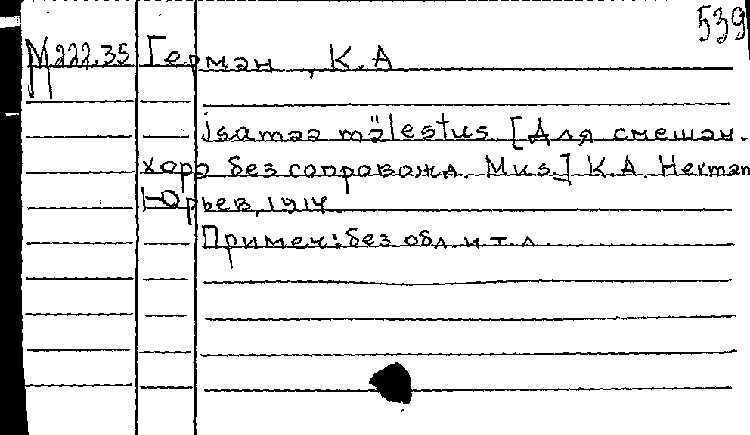 539
М222.35 Герман, К.А
isamaa mälestus [Для смешан.
хора без сопровожд. Mus.] K.A. Herman
Юрьев, 1914.
Примеч: без обл. и т. л